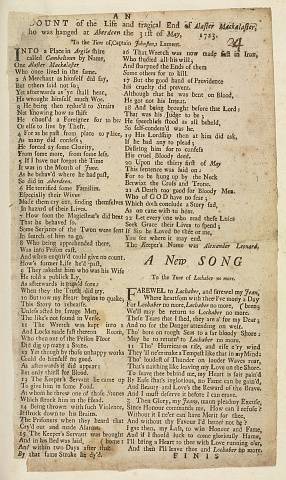 AN
COUNT of the Life and tragical End of Alaster Mackalaster,
he was hanged at Aberdeen the 31st of May, 1723.
24
To the Tune of, Captain Johnstons Lament.
INTO a Place in Argile shire
called Cambeltoun by Name,
One Alaster Mackalaster
Who once lived in the same.
2 A Merchant as himself did say,
But others said not so;
Yet afterwards as ye shall hear,
He wrought himself much Woe.
3 He being then reduc'd to Straits
Not knowing how to shift
He chus'd a Foreigner for to be
Or else to live by Theft.
4 For as he past from place to place,
As many did confess;
He feign'd as some Charity,
From some more, from some less.
5 If I have not forgot the Time
It was in the Month of June.
As he behav'd where he had past,
So did in Aberdeen.
6 He terrified some Families,
Especially their Wives
Made them cry out, finding themselves
In hazard of their Lives.
7 How soon the Magistrat's did hear
That he behaved so.
Some Servants of the Town were sent
In search of him to go.
8 Who being apprehended there,
Was into Prison cast,
And when enquir'd could give no count,
How's former Life he'd past,
9 They asked at him who was his Wife
He told a publick Ly,
As afterwards it did appear
When they the Truth did try.
10 But now my Heart begins to quake,
This Story to rehearse,
Unless acted by savage Men,
The like's not found in Verse.
11 The Wretch was kept into a
And Locks made fast thereon Room,
Who then out of the Prison Floor
Did dig up many a Stone.
12 Yet though by those unhappy works
Could do himself no good.
As afterwards it did appear
but only thirst for Blood.
13 The Keeper's Servant he came up
To give him some Food.
At whom he threw one of these Stones
Which struck him in the Head.
14 Being thrown with such Violence,
It stuck down to his Brains.
The Prisoners when they heard that
Cry'd out and made Alarms.
15 The Keeper's Servant was brought
And in his Bed was laid, home
And within two Days after that
By that same Stroke he dy'd.
16 That Wretch was now made fast in Iron,
Who studied all his will;
And sharpned the Ends of them
Some others for to kill.
17 But the good hand of Providence
his cruelty did prevent.
Although that he was bent on Blood,
He got not his Intent.
18 And being brought before that Lord
That was his Judge to be;
He speechless stood as all behold,
So self-condemn'd was he.
19 His Lordship then at him did ask,
If he had any to plead;
Desiring him for to confess
His cruel, Bloody deed.
20 Upon the thirty first of May
This sentence was laid on:
For to be hung up by the Neck
Betwixt the Crofs and Trone.
21 A Death too good for Bloody Men,
Who of GOD have no fear;
Which doth conclude a Story sad,
As on once with to hear.
22 Let every one who read these Lines
Seek Grace their Lives to spend;
If Sin be Loved be thee or me,
You see where it may end.
The Keeper's Name was Alexander Leonard.
A NEW SONG
To the Tune of Lochaber no more.
FAREWEL to Lochaber, and farewel my Jean,
Where heartsom with thee I've mony a Day
For Lochaber no more, Lochaber no more, been,
We'll may be return to Lochaber no more.
These Tears that I shed, they are a' for my Dear,
And no for the Danger attending on weir.
Tho' bore on rough Seas to a far bloody Shore
May be to return to Lochaber no more.
2. Tho' Hurricanes rise, and rise e'ry wind
They'll ne'er make a Tempest like that in my Mind:
Tho' loudest of Thunder on louder Waves roar,
That's naithing like leaving my Love on the Shore.
To leave thee behind me, my Heart is sair pain'd
By Ease that's inglorious, no Fame can be gain'd,
And Beauty and Love's the Reward of the Brave.
And I must deserve it before I can crave.
3. Then Glory, my Jeany, maun pleadmy Excuse,
Since Honour commands me, How can I refuse?
Without it I ne'er can have Merit for thee,
And without thy Favour I'd better not be?
I gae then, my Lass, to win Honour and Fame,
And if I should luck to come gloriously Hame,
I'll bring a Heart to thee with Love running o'er,
And then I'll leave thee and Lochaber no more.
FINIS